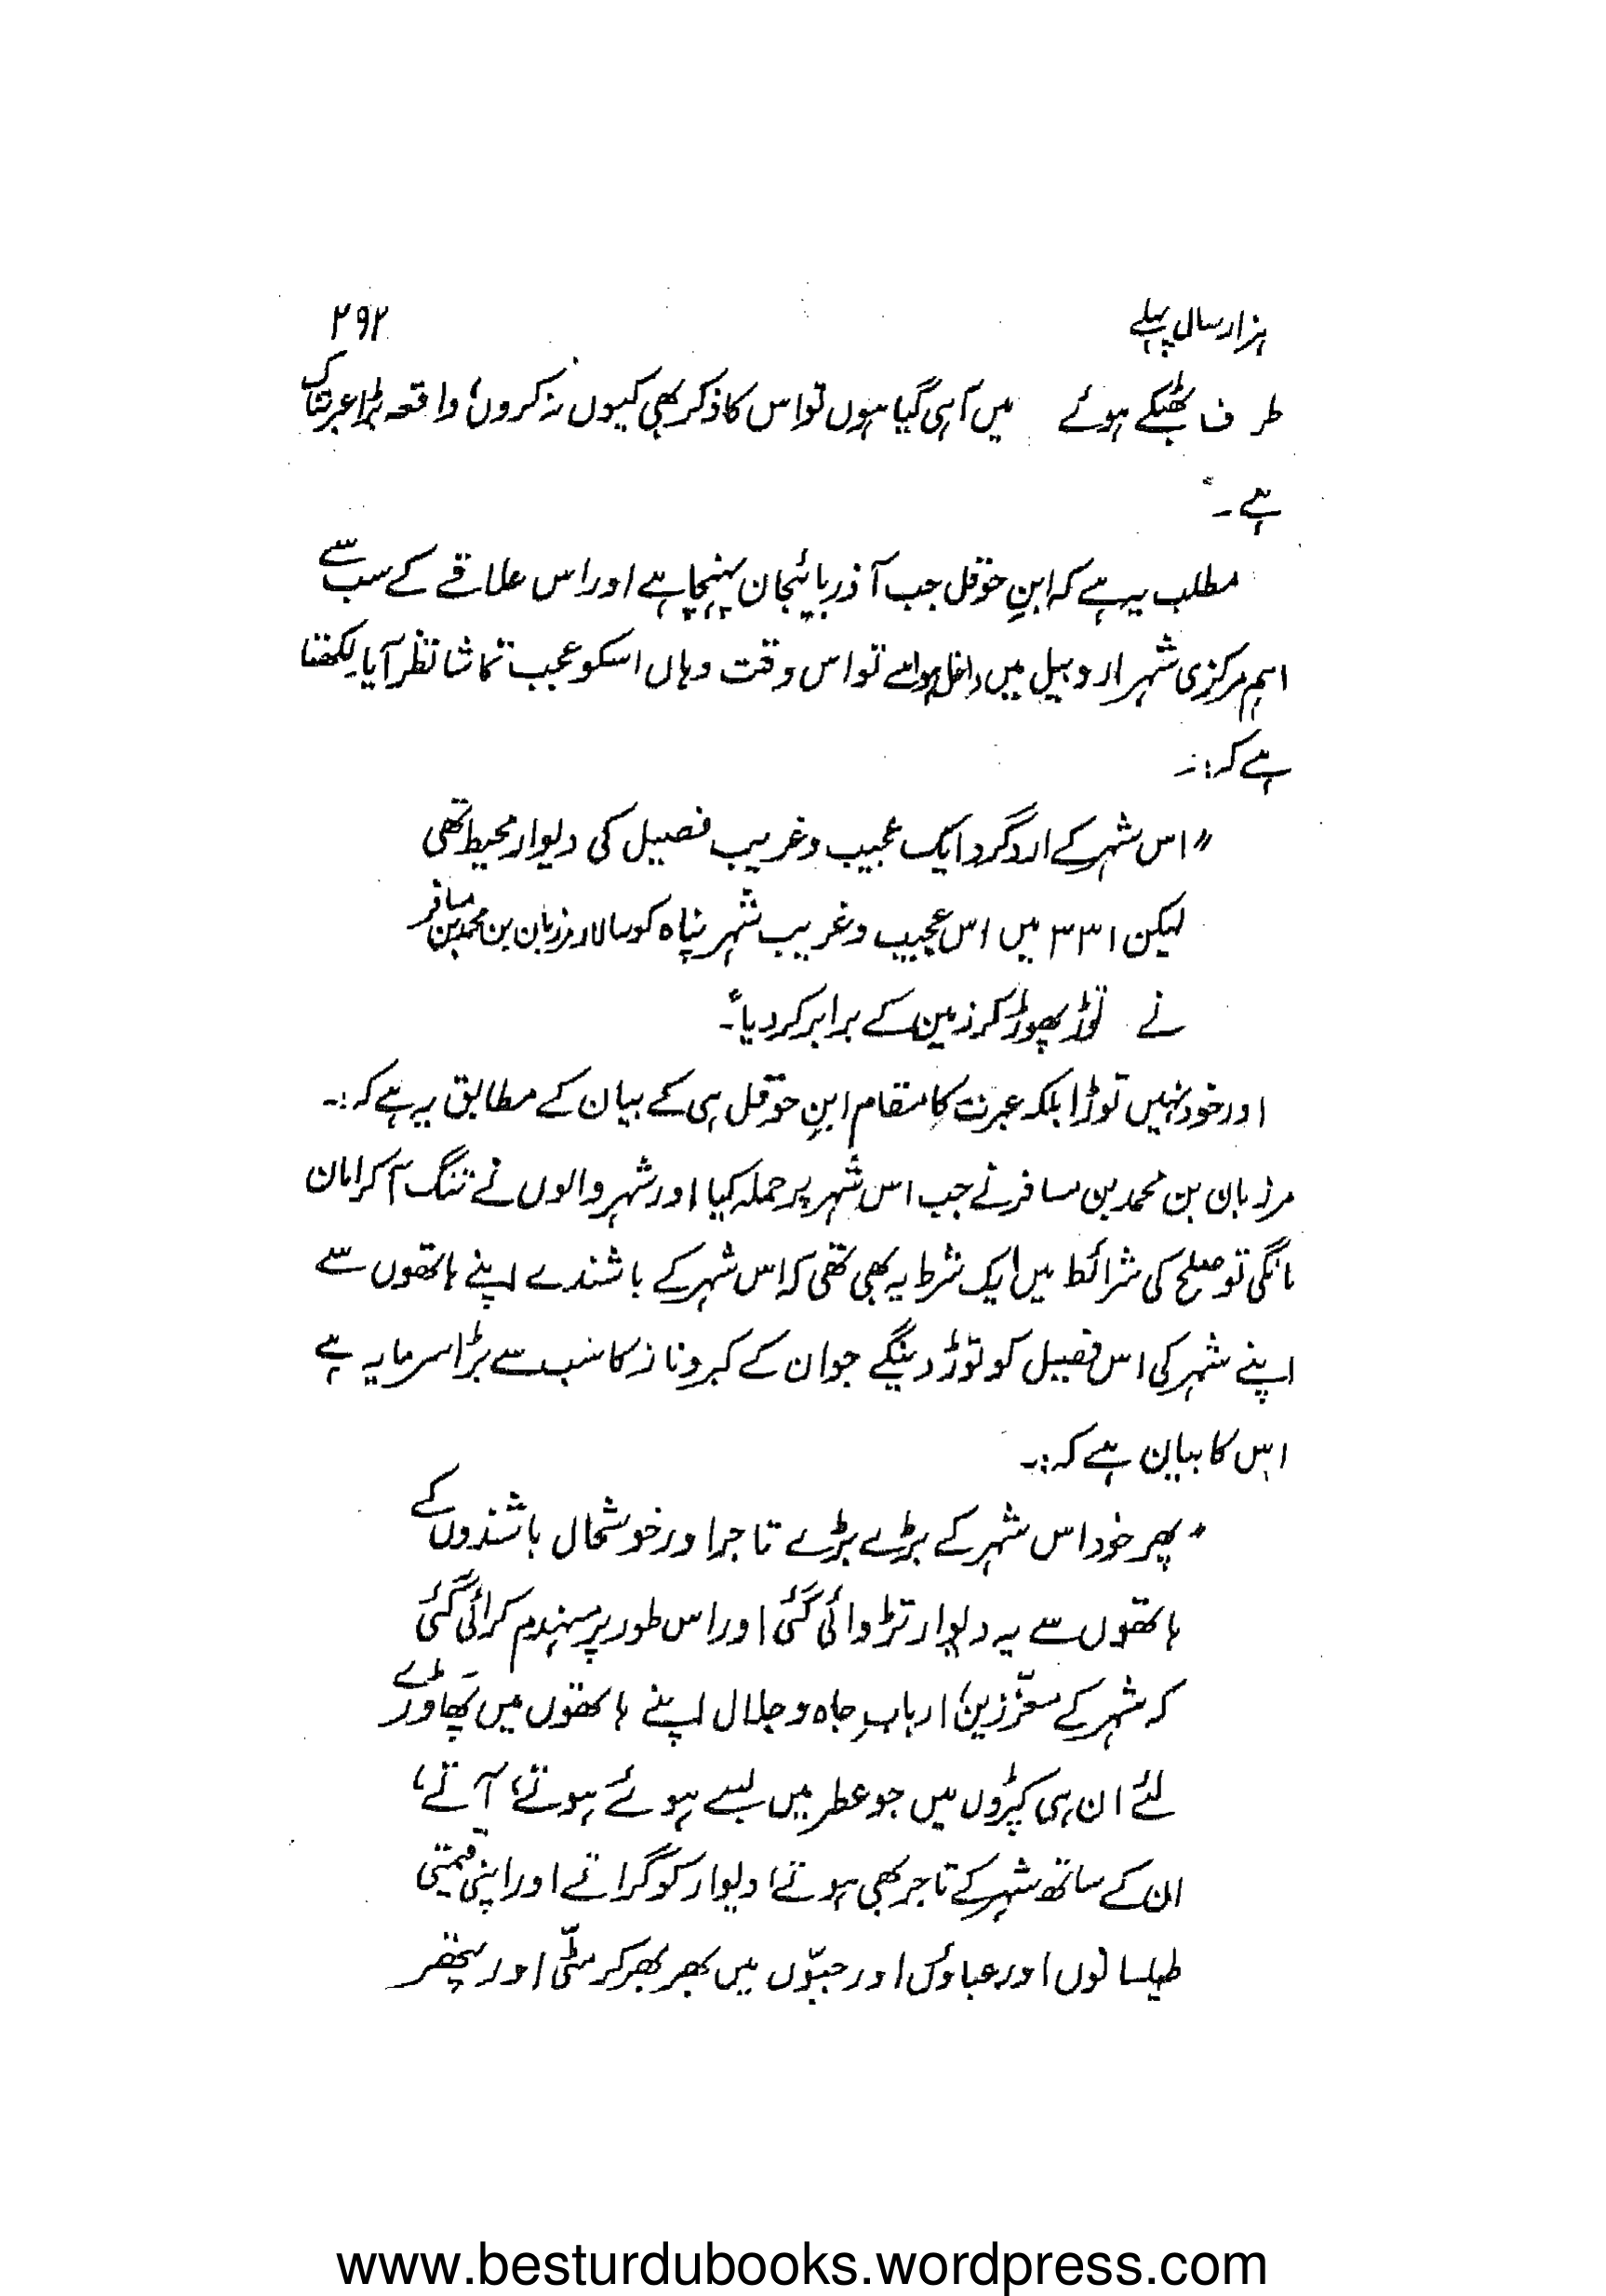 ہزار سال پہلے ۲۹۲
طرف بھٹکے ہوئے میں آہی گیا ہوں تو اس کا ذکر بھی کیوں نہ کروں، واقعہ بڑا عبرتناک
ہے۔"
مطلب یہ ہے کہ ابنِ حوقل جب آذربائیجان پہنچا ہے اور اس علاقے کے سب سے
اہم مرکزی شہر اردبیل میں داخل ہوا ہے تو اس وقت وہاں اسکو عجب تماشا نظر آیا۔ لکھتا
ہے کہ:۔
"اس شہر کے ارد گرد ایک عجیب و غریب فصیل کی دیوار محیط تھی
لیکن ۳۳۱ میں اس عجیب و غریب شہر پناہ کو سالار مرزبان بن محمد بن مسافر
نے توڑ پھوڑ کر زمین کے برابر کر دیا"۔
اور خود نہیں توڑا بلکہ عبرت کا مقام ابنِ حوقل ہی کے بیان کے مطابق یہ ہے کہ:۔
مرزبان بن محمد بن مسافر نے جب اس شہر پر حملہ کیا اور شہر والوں نے تنگ آکر امان
مانگی تو صلح کی شرائط میں ایک شرط یہ بھی تھی کہ اس شہر کے باشندے اپنے ہاتھوں سے
اپنے شہر کی اس فصیل کو توڑ دینگے جو ان کے کبر و ناز کا سب سے بڑا سرمایہ ہے
اس کا بیان ہے کہ:۔
"پھر خود اس شہر کے بڑے بڑے تاجر اور خوشحال باشندوں کے
ہاتھوں سے یہ دیوار تڑوائی گئی اور اس طور پر منہدم کرائی گئی
کہ شہر کے معزّزین، اربابِ جاہ و جلال اپنے ہاتھوں میں پھاوڑے
لئے ان ہی کپڑوں میں جو عطر میں بسے ہوئے ہوتے، آتے،
ان کے ساتھ شہر کے تاجر بھی ہوتے، دیوار کو گراتے اور اپنی قیمتی
طیلسانوں اور عباؤں اور جبّوں میں بھر بھر کر مٹّی اور پتھر
www.besturdubooks.wordpress.com